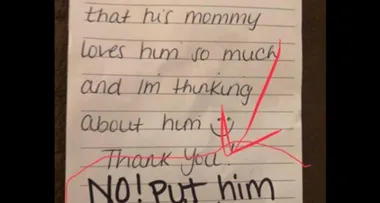 that his mommy
loves him so much
and im thinking
about him
Thank You!
NO! PUT him